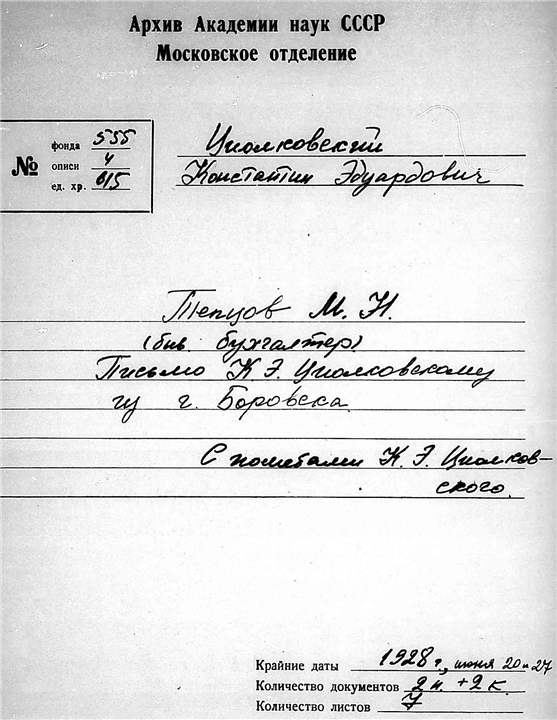 Архив Академии наук СССР
Московское отделение
№
фонда 555
описи 4
ед. хр. 615
Циолковский
Константин Эдуардович
Тепцов М. Н.
(быв. бухгалтер)
Письмо К. Э. Циолковскому
из г. Боровска.
С пометами К. Э. Циолков-
ского.
Крайние даты 1928 г., июня 20 и 27
Количество документов 2 п. + 2 к.
Количество листов 7